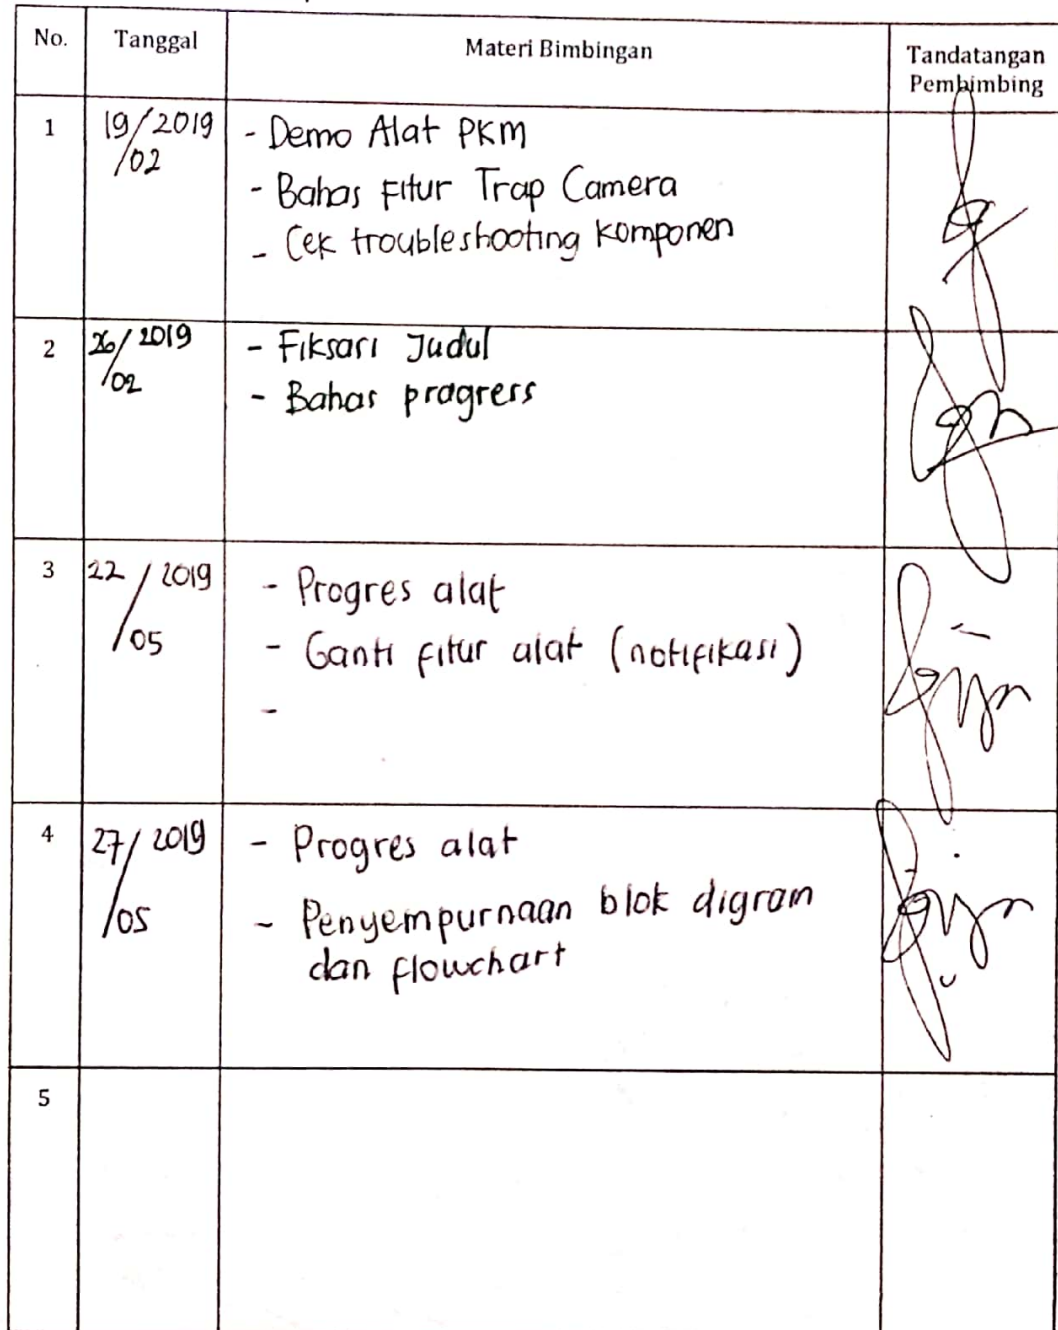 No. Tanggal Materi Bimbingan Tandatangan
Pembimbing
1 19/2019 - Demo Alat PKM
/02
- Bahas Fitur Trap Camera
- Cek troubleshooting komponen
2 26/2019 - Fiksasi Judul
/02
- Bahas progress
3 22/2019 - Progres alat
/05
- Ganti fitur alat (notifikasi)
-
4 27/2019 - Progres alat
/05
- Penyempurnaan blok digram
dan flowchart
5